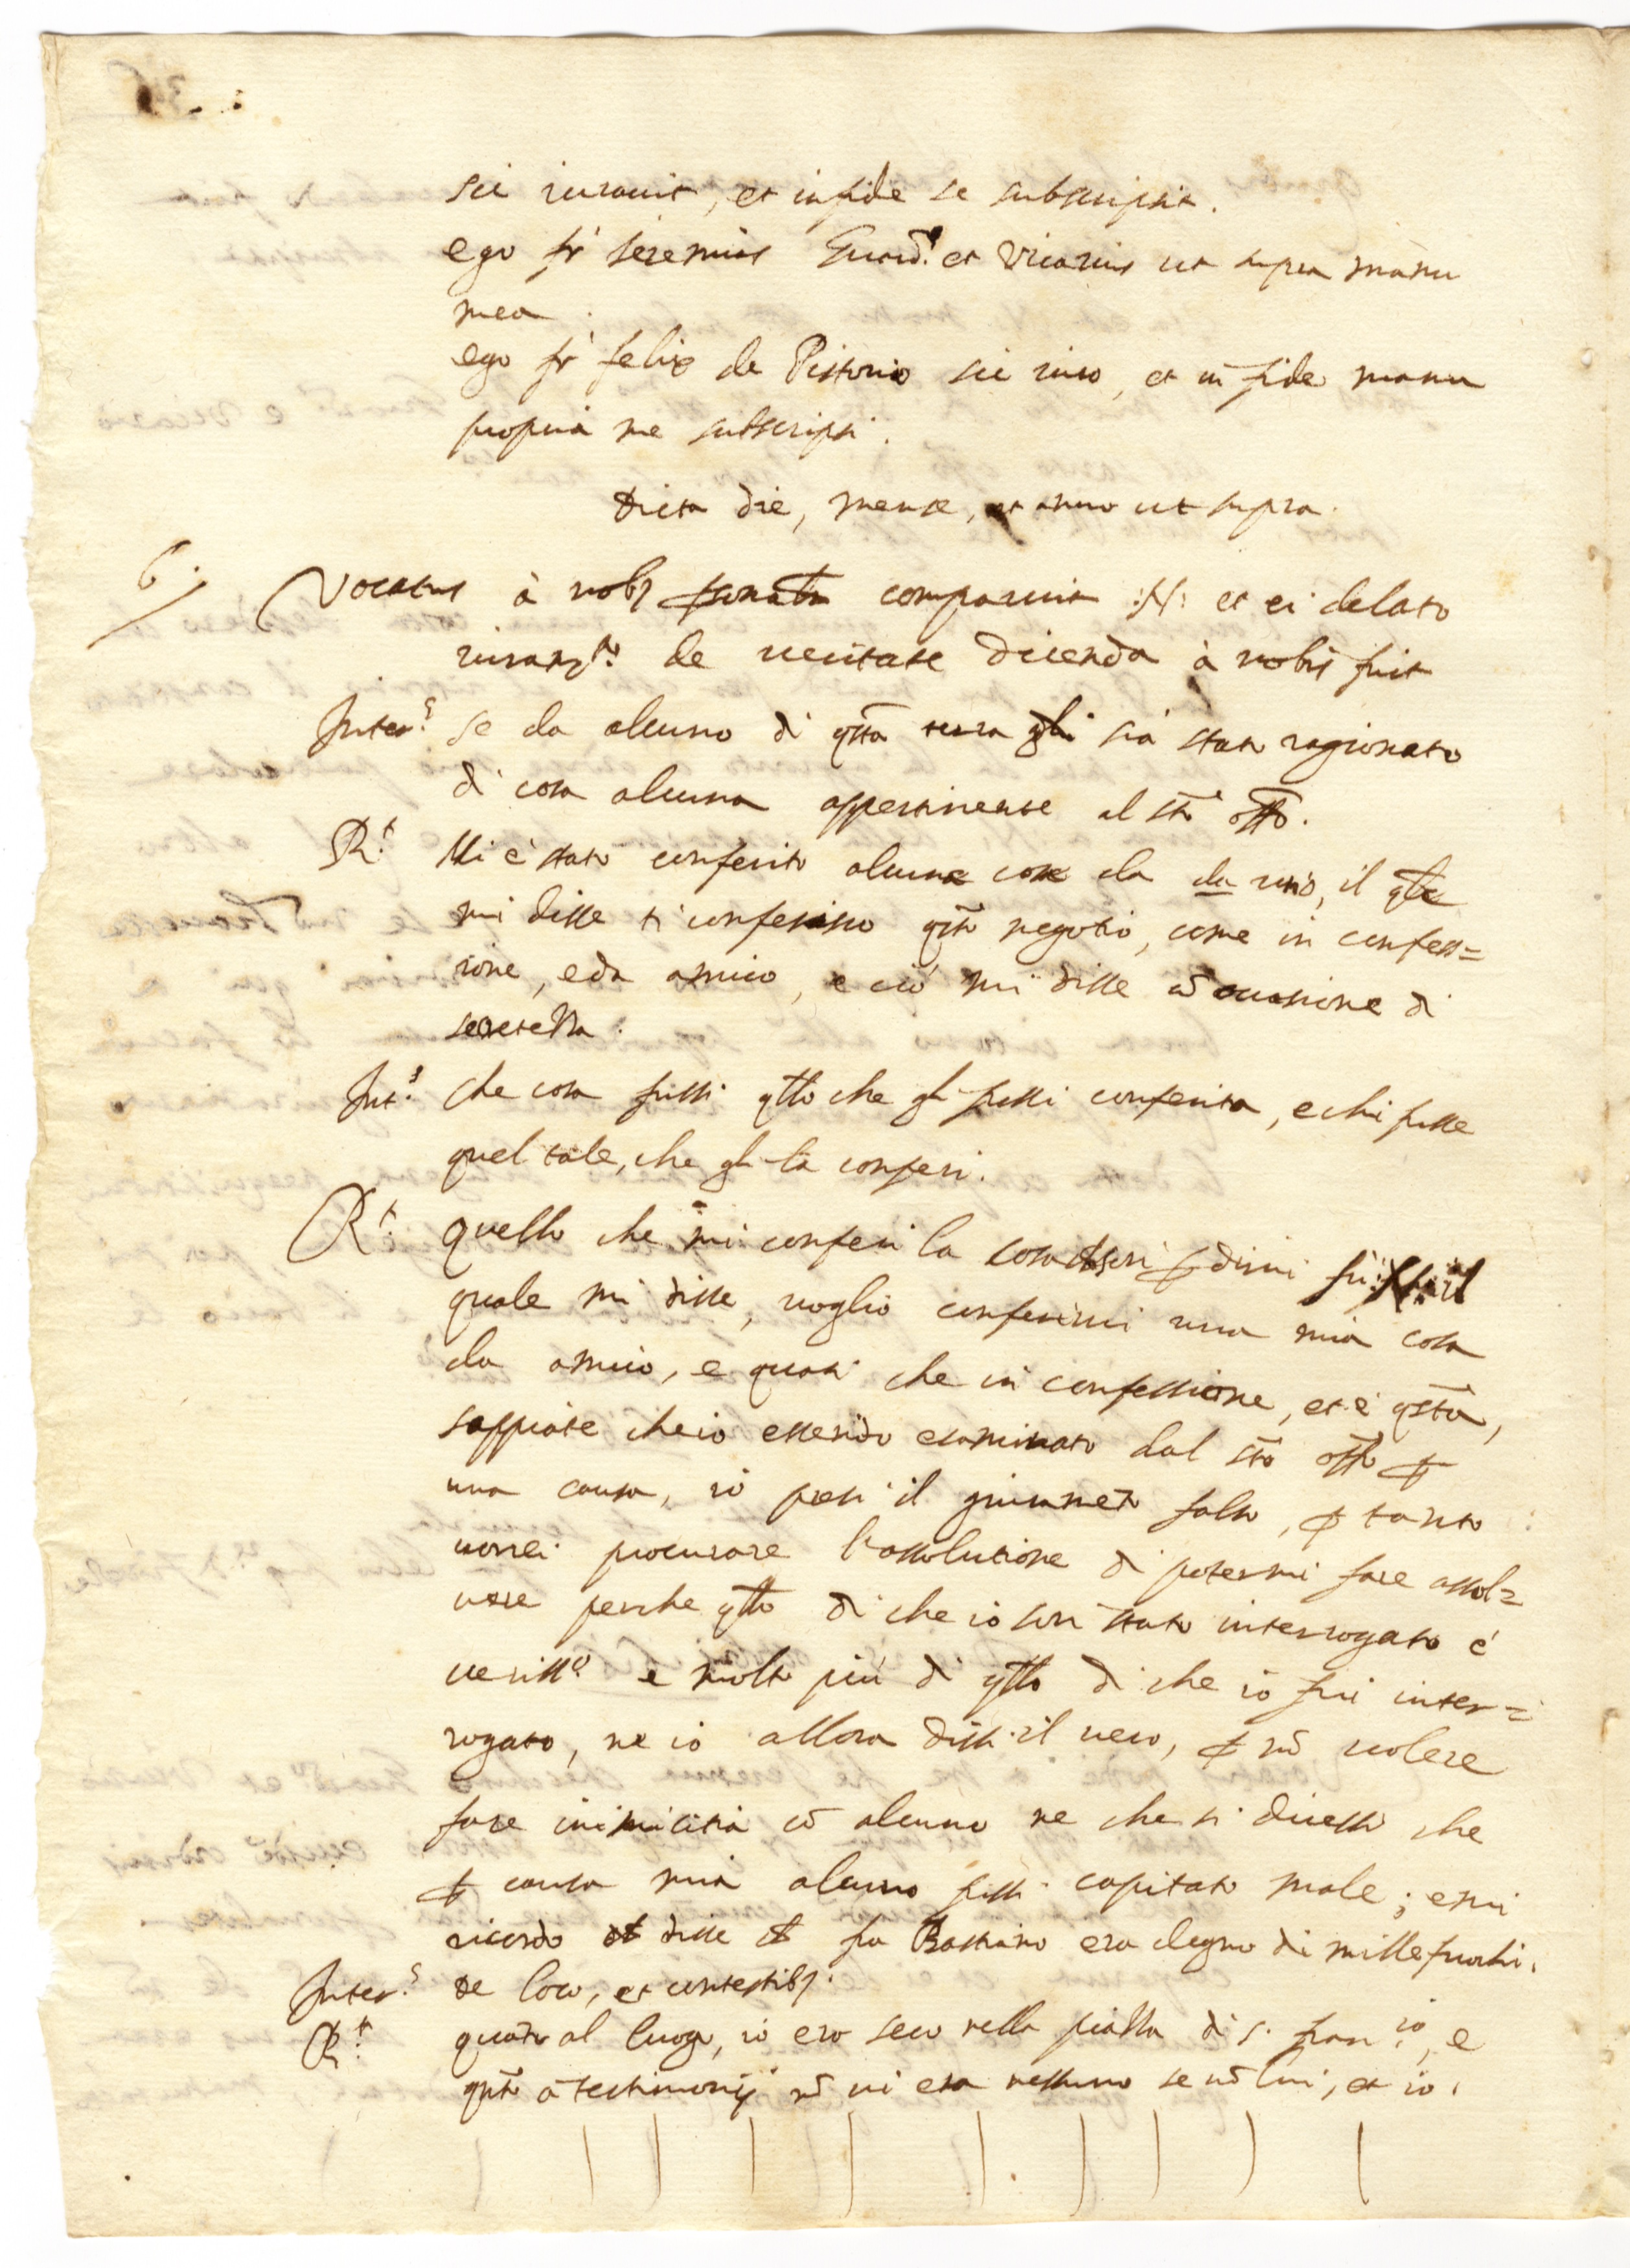 sic iuravit, et in fide se subscripsit.
ego fr' Ieremias Guard.s et Vicarius ut supra manu
mea.
ego fr' felix de Pistorio sic iuro, et in fide manu
propria me subscripsi.
Dicta die, mense, et anno ut supra.
6.
Vocatus à nobis comparuit :N: et ei delato
iuram.to de veritate dicenda à nobis fuit
Inter.s se da alcuno di q̄sta terra gli sia stato ragionato
di cosa alcuna appertinente al s̄to off̄o.
R.t Mi è stato conferito alcune cose da da uno, il q̄le
mi disse ti conferisco q̄sto negotio, come in confess=
sione, e da amico, e ciò mi disse cō occasione di
secretezza.
Int.s che cosa fussi q̄llo che gli fussi conferita, e chi fusse
quel tale, che gli la conferì.
R.t quello che mi conferì la cosa fù il
quale mi disse, voglio conferirvi una mia cosa
da amico, e quasi che in confessione, et è q̄sta,
sappiate che io essendo esaminato dal s̄to off̄o ꝑ
una causa, io presi il giuramēto falso, ꝑ tanto
vorrei procurare l'assolutione di potermi fare assol=
vere perche q̄llo di che io son stato interrogato è
veriss.o e molto più di q̄llo di che io fui inter=
rogato, ne io allora dissi il vero, ꝑ nō volere
fare inimicitia cō alcuno ne che si dicessi che
ꝑ causa mia alcuno fussi capitato male; e mi
ricordo disse fra Bastiano era degno di mille fuochi.
Inter.s de loco, et contestibus.
R.t quāto al luogo, io ero seco nella piazza di S. fran.co, e
q̄nto a testimonij nō vi era nessuno se nō lui, et io.